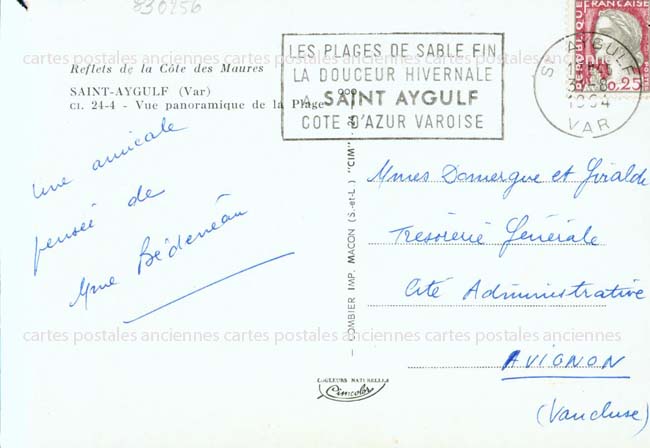 830256
cartes postales anciennes cartes postales anciennes cartes postales anciennes
Reflets de la Côte des Maures
SAINT-AYGULF (Var)
CI. 24-4 - Vue panoramique de la Plage
LES PLAGES DE SABLE FIN
LA DOUCEUR HIVERNALE
A SAINT AYGULF
COTE D'AZUR VAROISE
REPUBLIQUE FRANÇAISE
POSTES
0,25
ST AYGULF
1964
VAR
une amicale
pensée de
Mme Bédéneau
COMBIER IMP. MACON (S.-et-L.) "CIM"
Mmes Domergue et Giralde
Trésorerie Générale
Cité Administrative
AVIGNON
(Vaucluse)
cartes postales anciennes cartes postales anciennes cartes postales anciennes
COULEURS NATURELLES
Cimcolor